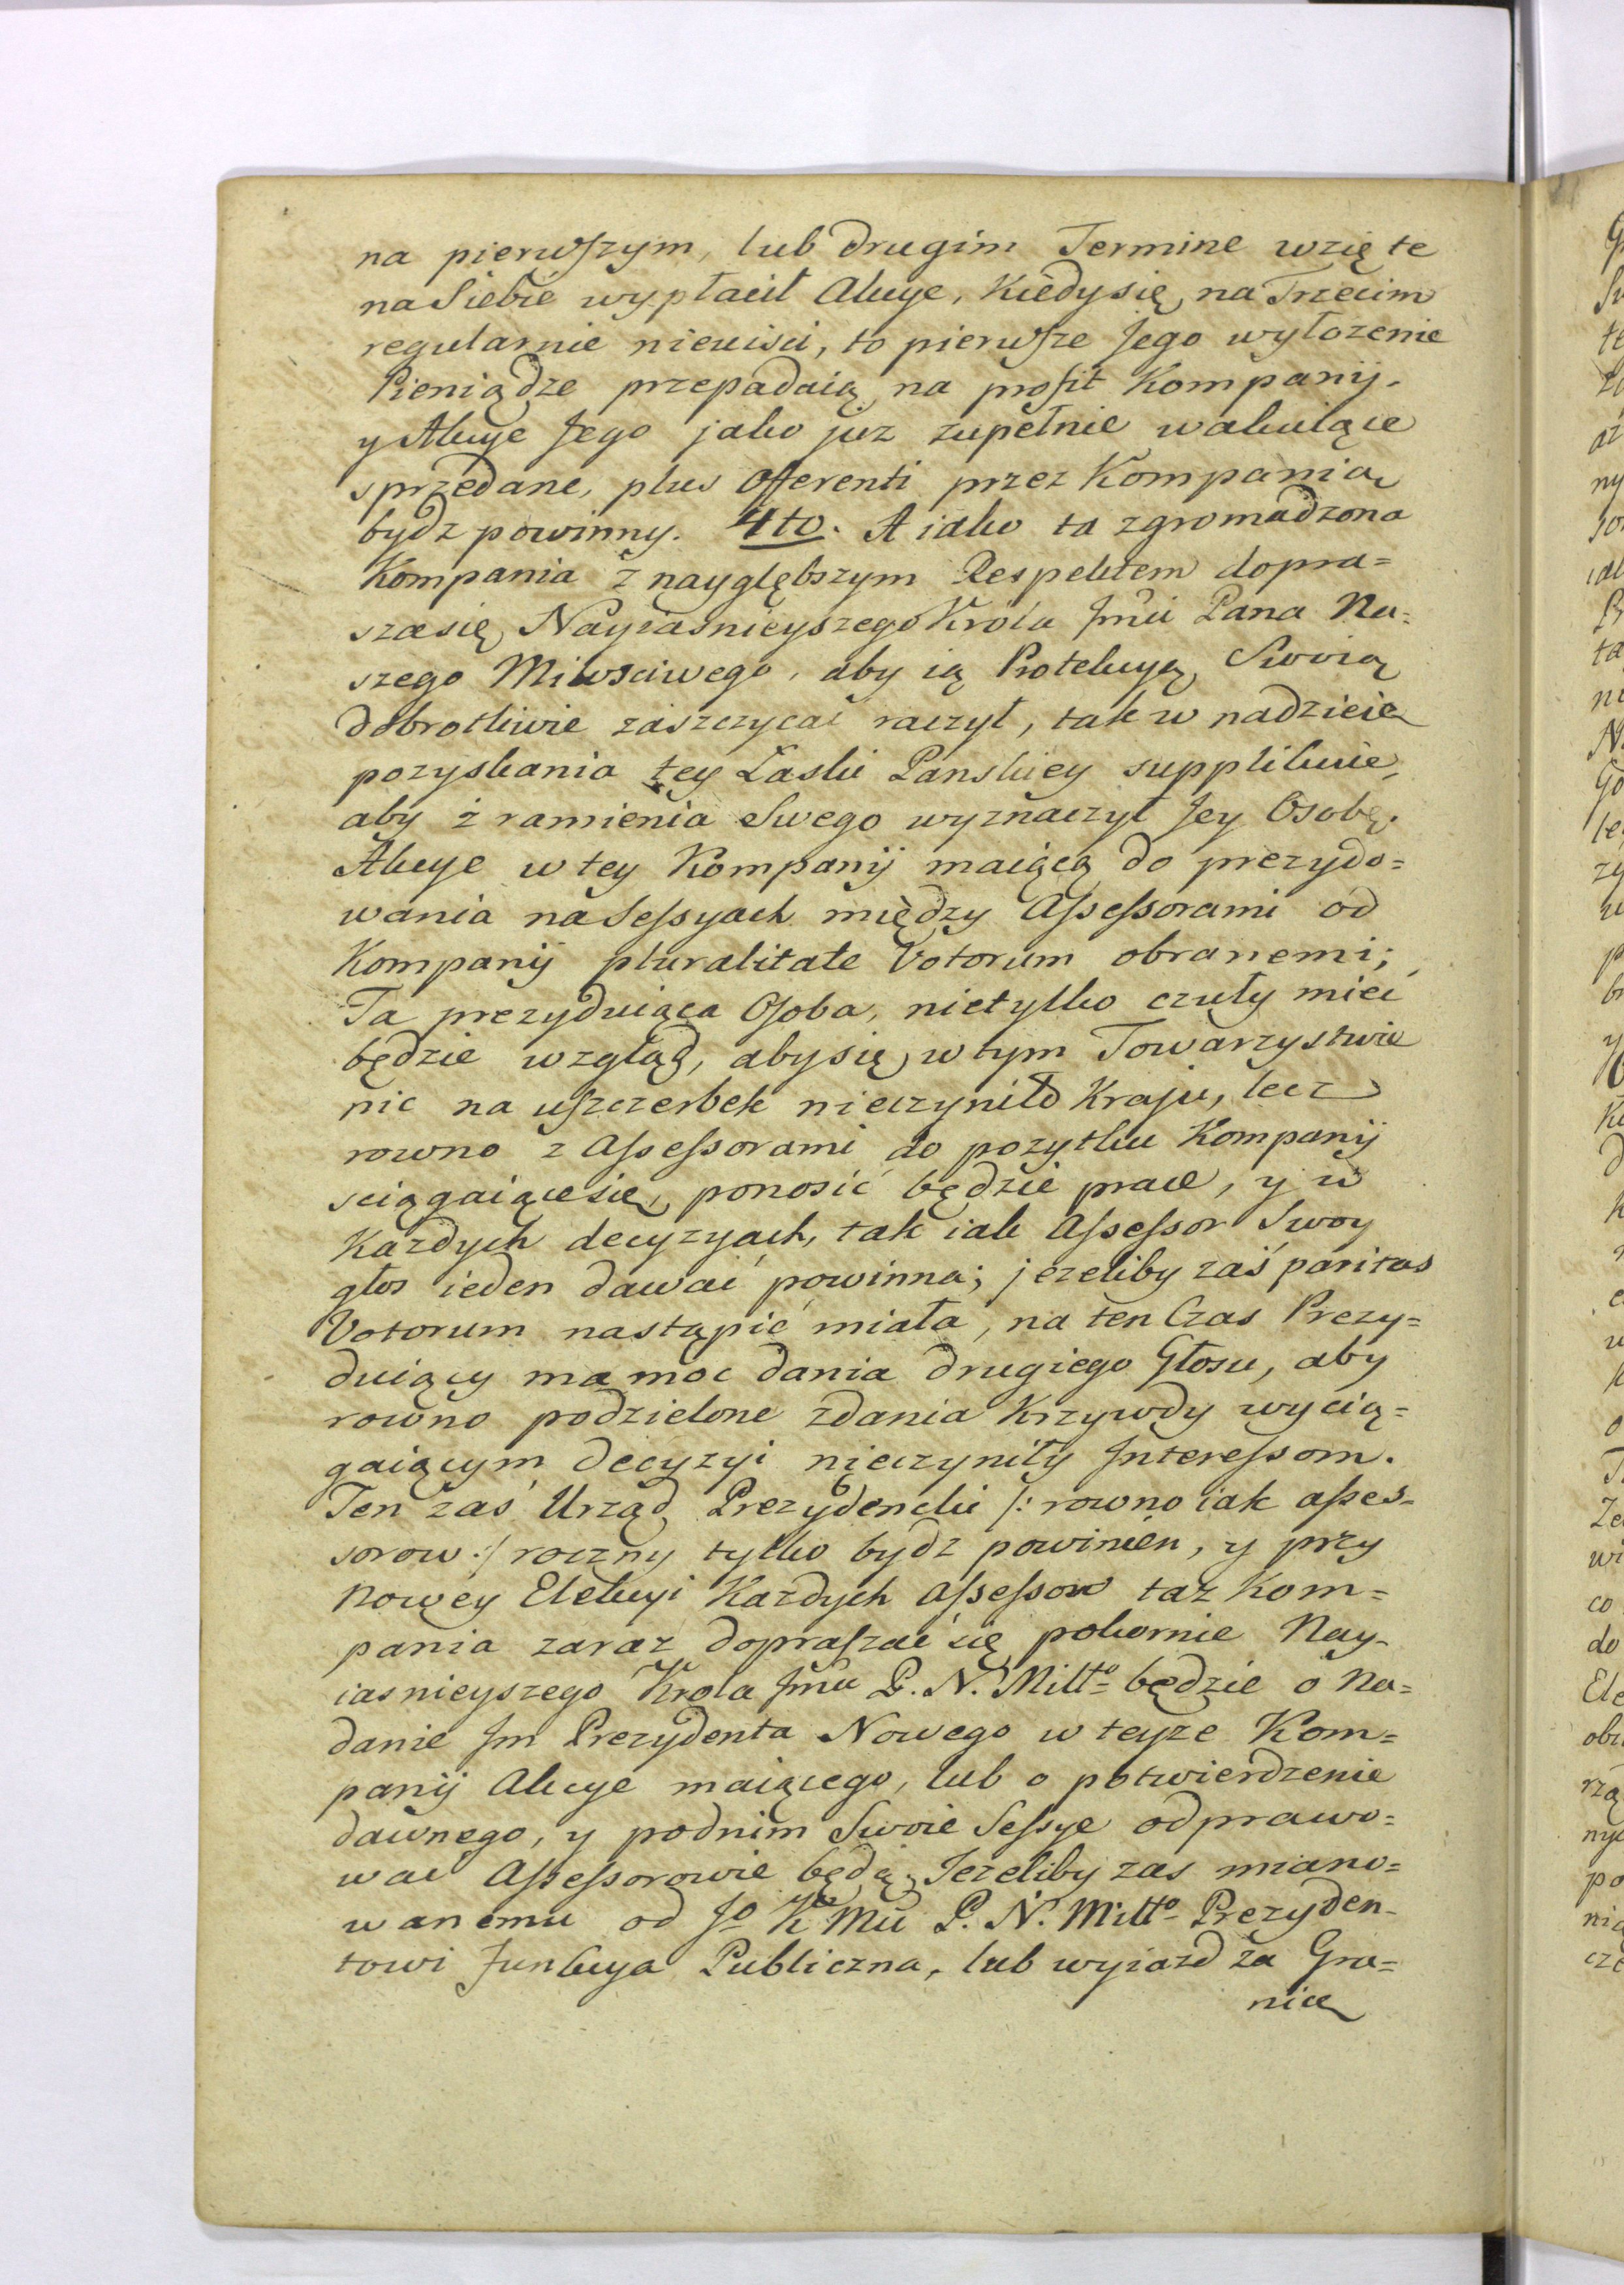 na pierwszym, lub drugim Terminie wzięte
na Siebie wypłacił Akcye, Kiedy się na Trzecim
regularnie nieuisci, to pierwsze Jego wyłozenie
Pieniądze przepadaią na profit Kompanij.
y Akcye Jego jako juz zupełnie wakuiące
sprzedane, plus Offerenti przez Kompanią
bydz powinny. 4to. A iako ta zgromadzona
Kompania z nayglębszym Respektem dopra=
sza się Nayiasnieyszego Króla Jmci Pana Na=
szego Miłosciwego, aby ią Protekcyą Swoią
dobrotliwie zaszczycać raczył, tak w nadzieię
pozyskania tey Łaski Panskiey supplikuie,
aby z ramienia Swego wyznaczył Jey Osobę.
Akcye w tey Kompanij maiącą do prezydo=
wania na Sessyach między Assessorami od
Kompanij pluralitate Votorum obranemi;
Ta prezyduiąca Osoba, nietylko czuły mieć
będzie wzgląd, aby się w tym Towarzystwie
nic na uszczerbek nieczyniło Kraju, lecz
rowno z Assessorami do pozytku Kompanij
sciągaiące się ponosić będzie prace, y w
Kazdych decyzyach, tak iak Assessor Swoy
głos ieden dawać powinna; jezeliby zaś paritas
Votorum nastąpić miała, na ten Czas Prezy=
duiący ma moc dania drugiego Głosu, aby
rowno podzielone zdania Krzywdy wycią=
gaiącym decyzyi nieczyniły Interessom.
Ten zaś Urząd Prezydencki /: rowno iak asses=
sorow :/ roczny tylko bydz powinien, y przy
Nowey Elekcyi Kazdych Assessow taz Kom=
pania zaraz dopraszać się pokornie Nay-
iasnieyszego Krola Jmci P. N. Miłło= będzie o Na=
danie Jm Prezydenta Nowego w teyze Kom=
panij Akcye maiącego, lub o potwierdzenie
dawnego, y pod nim Swoie Sessye odprawo=
wac Assessorowie będą. Jezeliby zas miano=
wanemu od Jo K Mci P. N. Miłło= Prezyden-
towi Funkcya Publiczna, lub wyiazd za Gra=
nicę